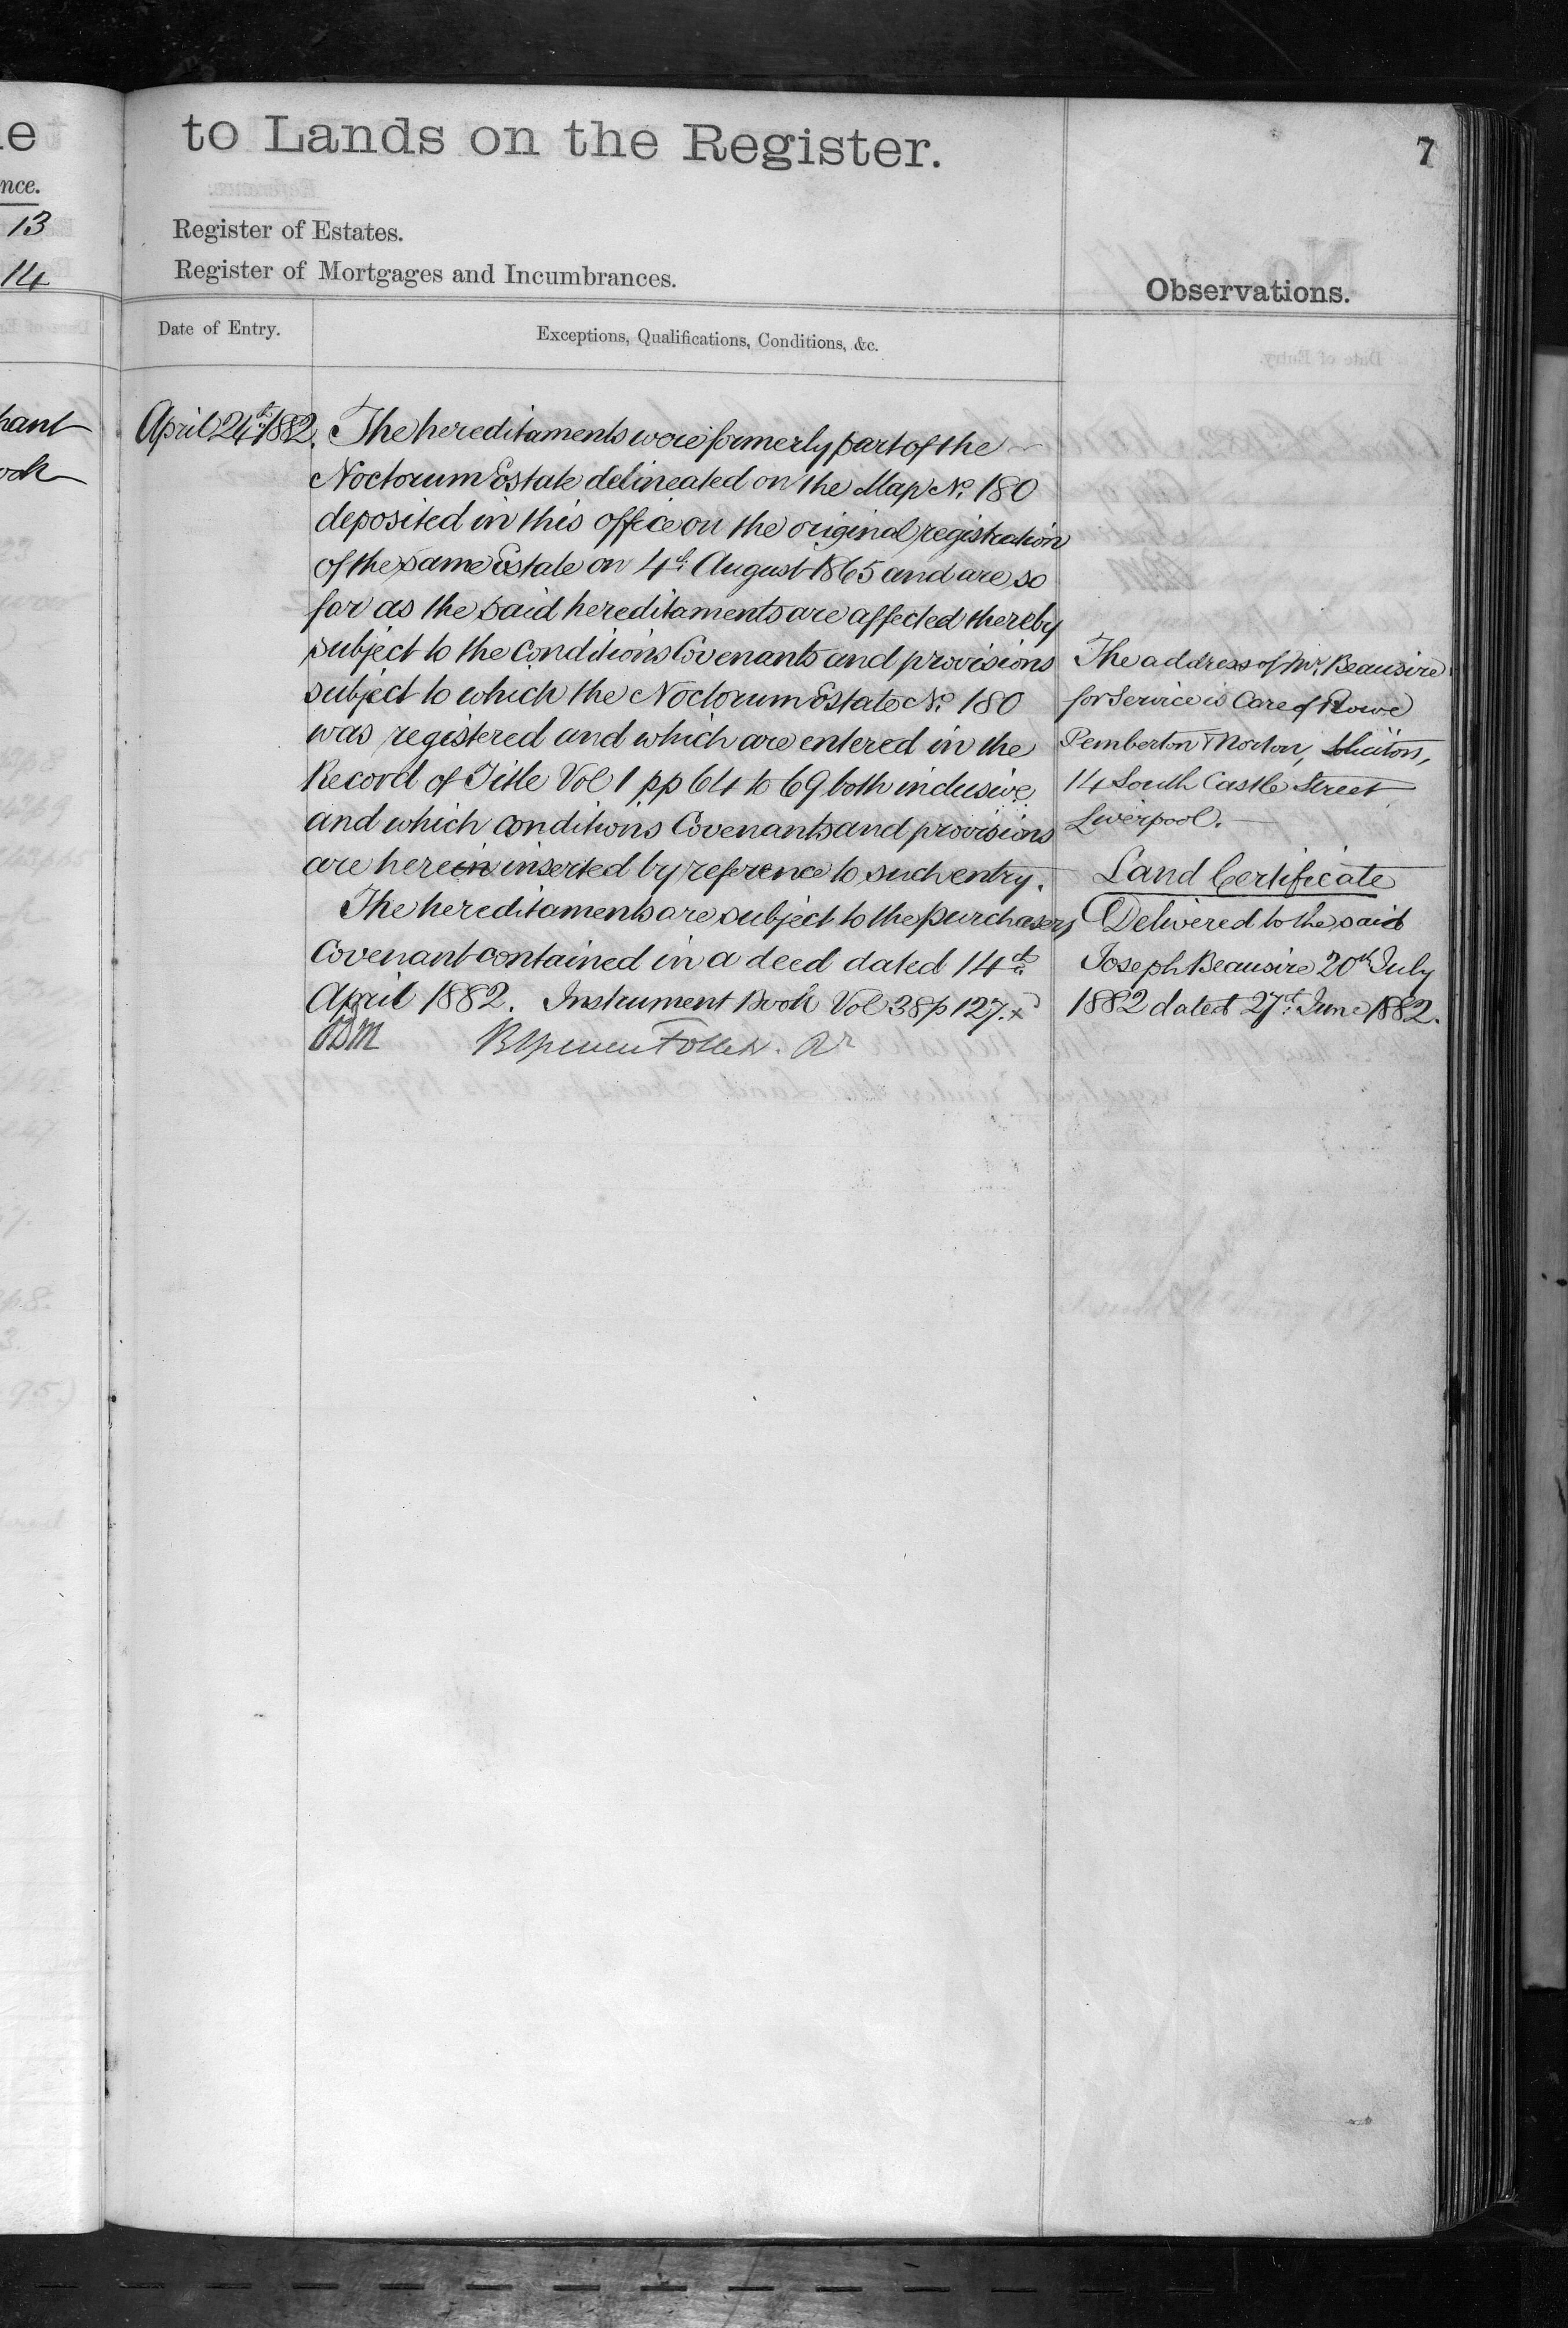 to Lands on the Register.
7
nce.
13
14
Register of Estates.
Register of Mortgages and Incumbrances.
Observations.
Date of Entry.
Exceptions, Qualifications, Conditions, &c.
April 24th 1882. The hereditaments were formerly part of the
Noctorum Estate delineated on the Map No. 180
deposited in this office on the original registration
of the same Estate on 4th August 1865 and are so
far as the said hereditaments are affected thereby
subject to the Conditions Covenants and provisions
subject to which the Noctorum Estate No. 180
was registered and which are entered in the
Record of Title Vol 1 pp 64 to 69 both inclusive
and which conditions Covenants and provisions
are herein inserted by reference to such entry.
The hereditaments are subject to the purchasers
Covenant contained in a deed dated 14th
April 1882. Instrument Book Vol 38 p 127. x
The address of Mr. Beausire
for Service is Care of Rowe
Pemberton Morton, Solicitors,
14 South Castle Street
Liverpool.
Land Certificate
Delivered to the said
Joseph Beausire 20th July
1882 dated 27th June 1882.